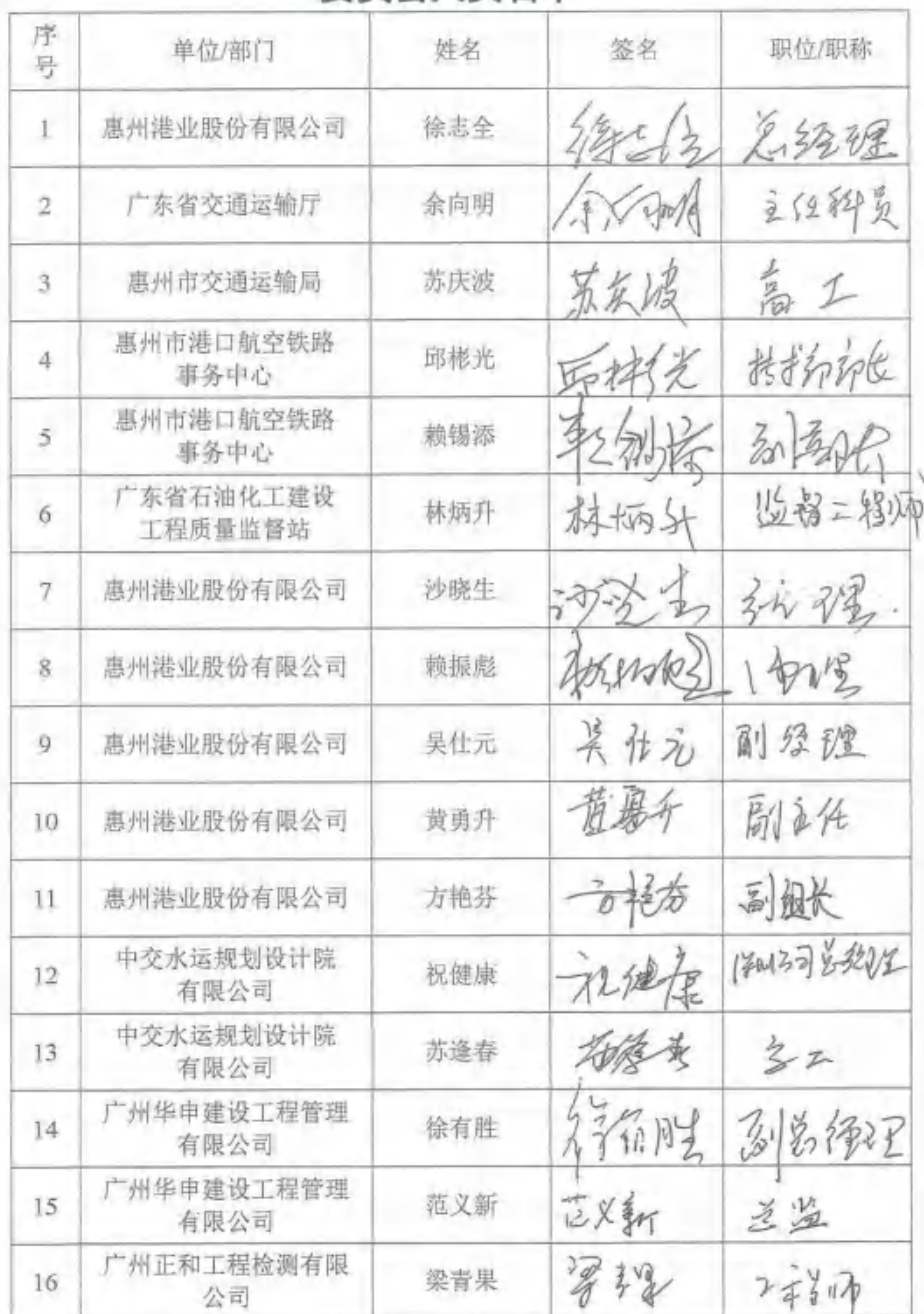 序号 单位/部门 姓名 签名 职位/职称
1 惠州港业股份有限公司 徐志全 总经理
2 广东省交通运输厅 余向明 余向明 主任科员
3 惠州市交通运输局 苏庆波 苏庆波 高工
4 惠州市港口航空铁路
事务中心 邱彬光 邱彬光 技术部部长
5 惠州市港口航空铁路
事务中心 赖锡添 副部长
6 广东省石油化工建设
工程质量监督站 林炳升 林炳升 监督工程师
7 惠州港业股份有限公司 沙晓生 沙晓生 经理
8 惠州港业股份有限公司 赖振彪
9 惠州港业股份有限公司 吴仕元 吴仕元 副经理
10 惠州港业股份有限公司 黄勇升 黄勇升 副主任
11 惠州港业股份有限公司 方艳芬 方艳芬 副组长
12 中交水运规划设计院
有限公司 祝健康 祝健康
13 中交水运规划设计院
有限公司 苏逢春 苏逢春
14 广州华申建设工程管理
有限公司 徐有胜 徐有胜 副总经理
15 广州华申建设工程管理
有限公司 范义新 范义新 总监
16 广州正和工程检测有限
公司 梁青果 梁青果 工程师